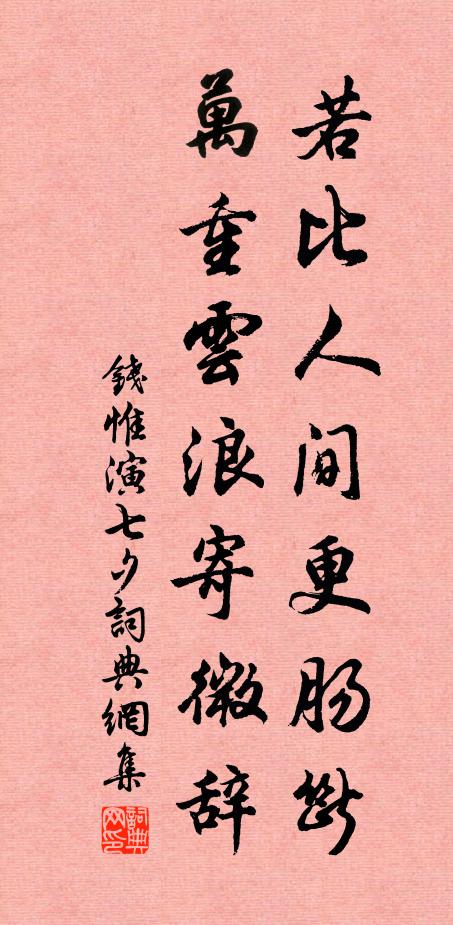 若比人间更肠断
萬重雲浪寄微辞
錢惟演七夕詞典網集
詞典网印